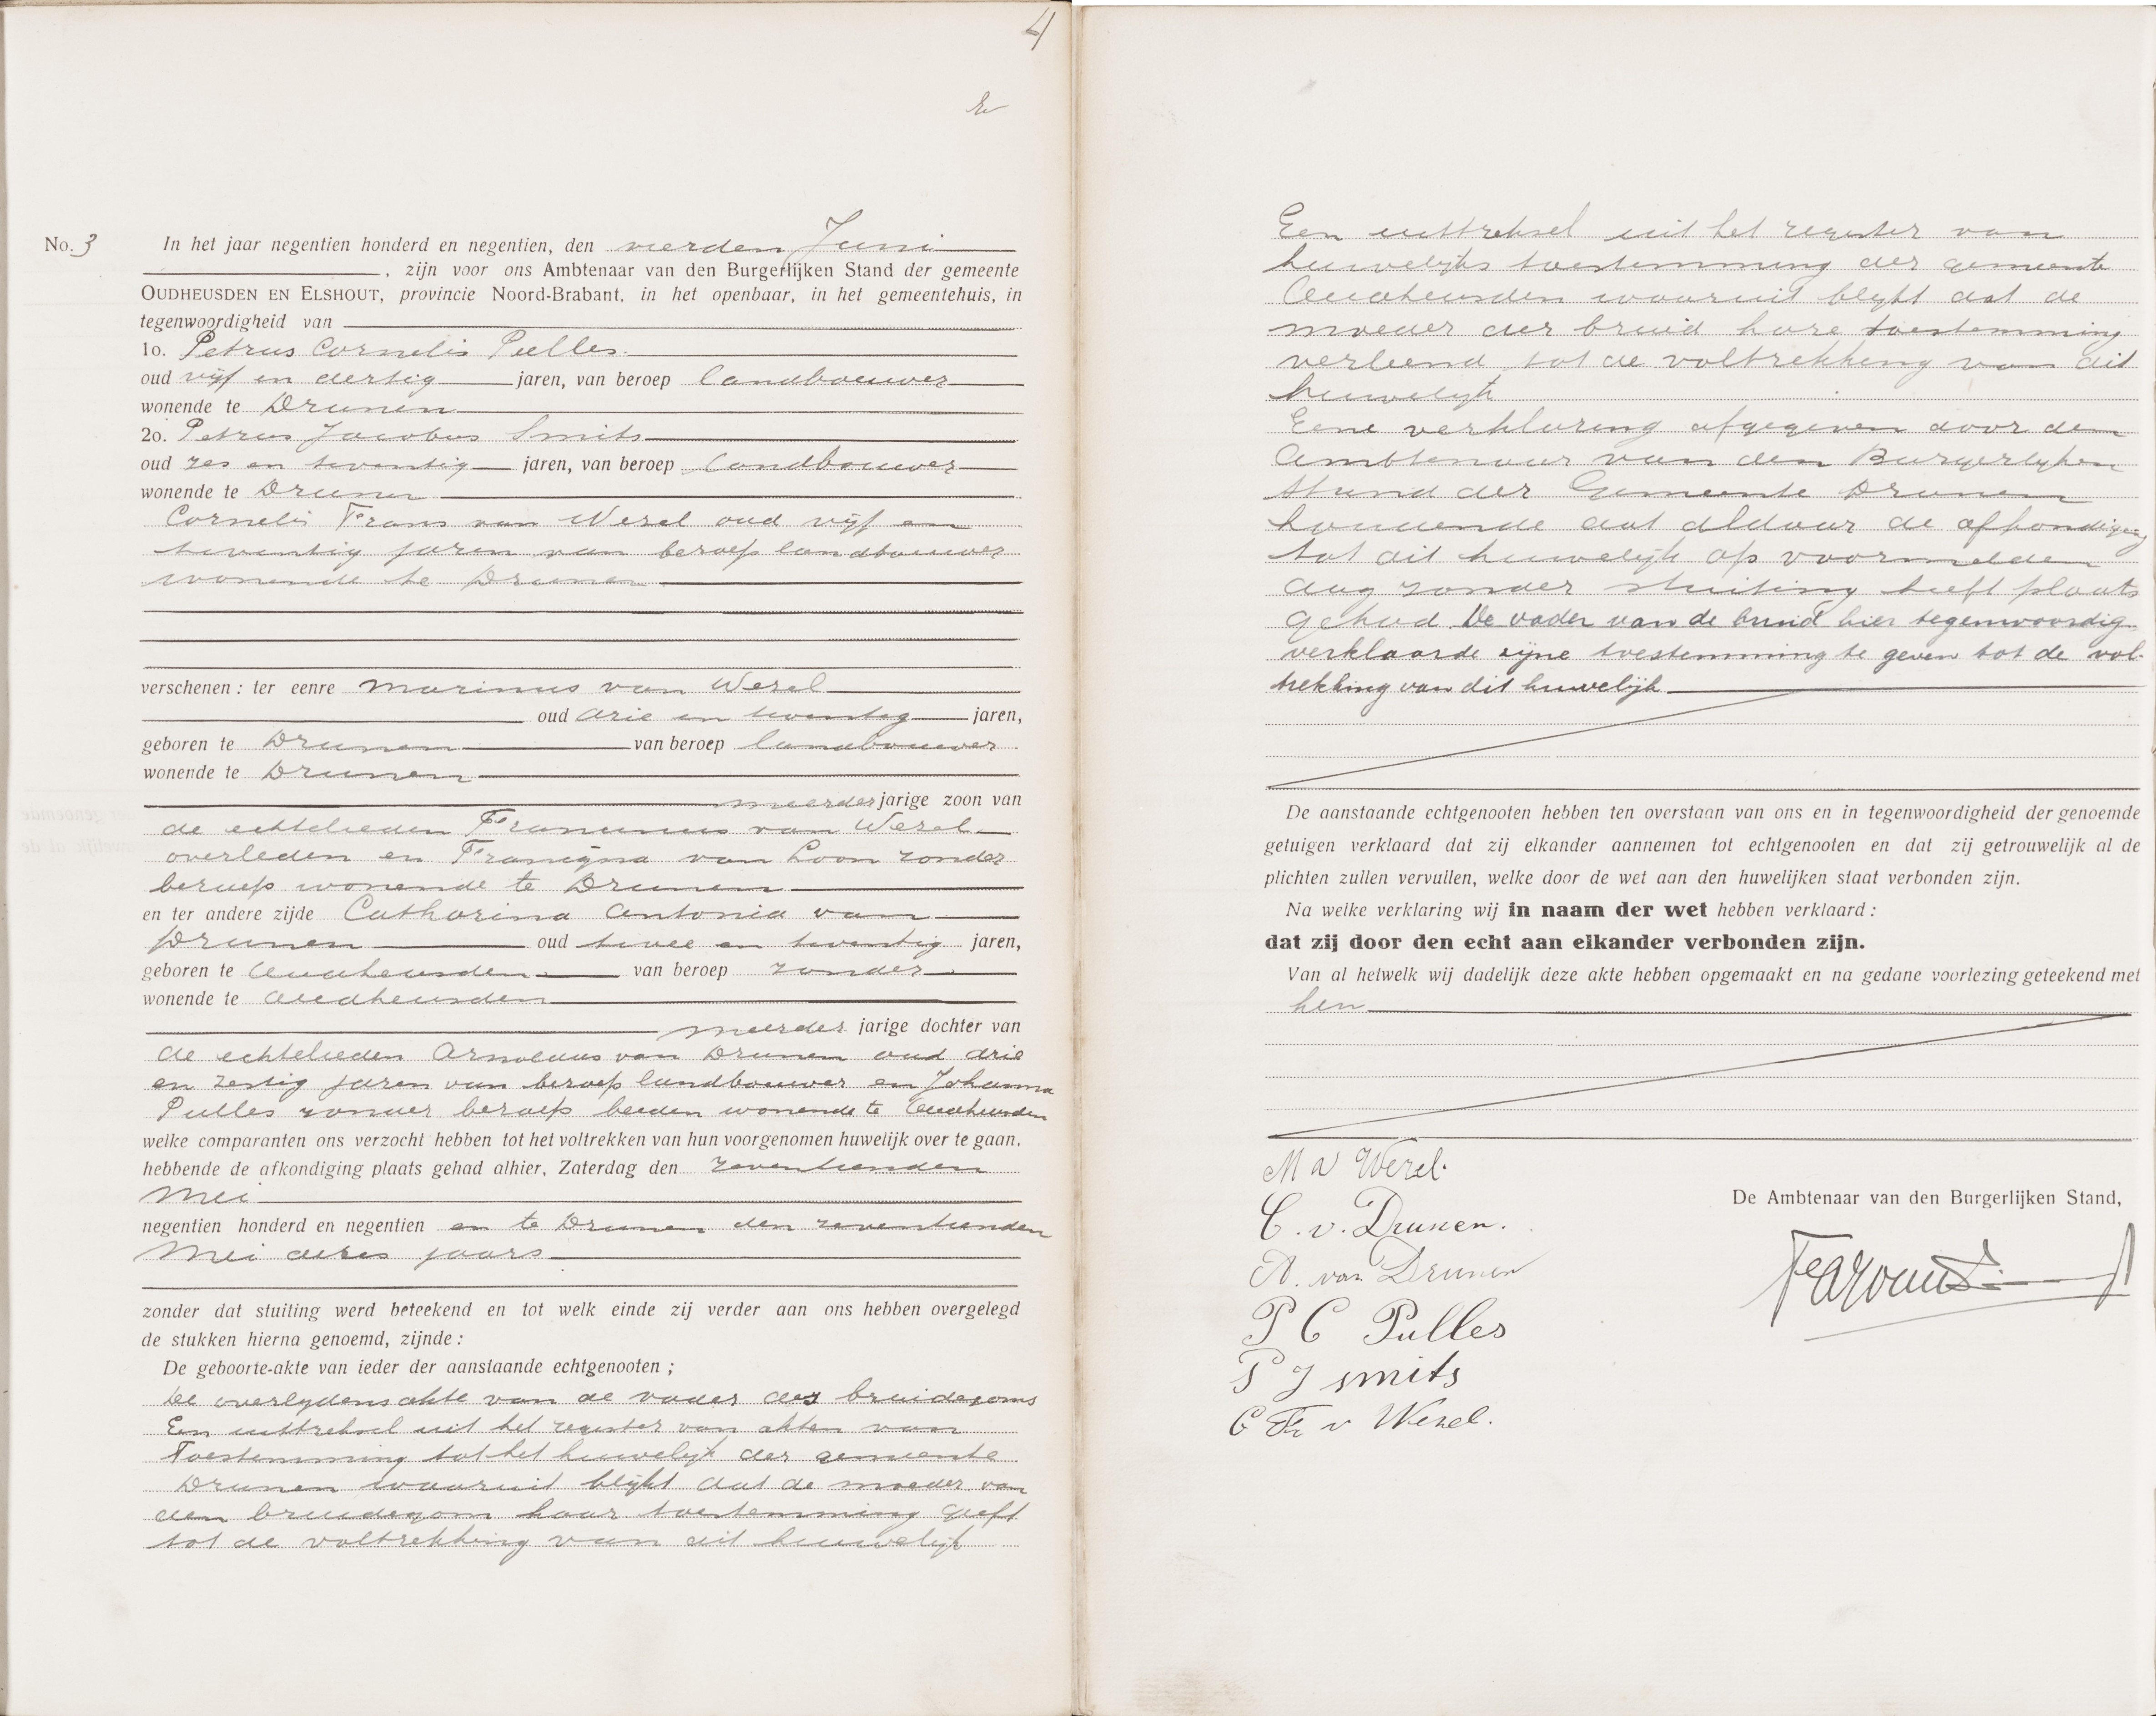 4
No. 3
In het jaar negentien honderd en negentien, den vierden Juni
, zijn voor ons Ambtenaar van den Burgerlijken Stand der gemeente
OUDHEUSDEN EN ELSHOUT, provincie Noord-Brabant, in het openbaar, in het gemeentehuis, in
tegenwoordigheid van
1o. Petrus Cornelis Pulles
oud vijf en dertig jaren, van beroep landbouwer
wonende te Drunen
2o. Petrus Jacobus Smits
oud zes en twentig jaren, van beroep landbouwer
wonende te Drunen
Cornelis Frans van Wezel oud vijf en
twentig jaren van beroep landbouwer
wonende te Drunen
verschenen: ter eenre Marinus van Wezel
oud drie en twentig jaren,
geboren te Drunen van beroep landbouwer
wonende te Drunen
meerderjarige zoon van
de echtelieden van Wezel
overleden en Francijna van Loon zonder
beroep wonende te Drunen
en ter andere zijde Catharina Antonia van
Drunen oud twee en twentig jaren,
geboren te Oudheusden van beroep zonder
wonende te Oudheusden
meerder jarige dochter van
de echtelieden Arnoldus van Drunen oud drie
en zestig jaren van beroep landbouwer en Johanna
Pulles zonder beroep beiden wonende te Oudheusden
welke comparanten ons verzocht hebben tot het voltrekken van hun voorgenomen huwelijk over te gaan,
hebbende de afkondiging plaats gehad alhier, Zaterdag den zeventienden
Mei
negentien honderd en negentien en te Drunen den zeventienden
Mei dezes jaars
zonder dat stuiting werd beteekend en tot welk einde zij verder aan ons hebben overgelegd
de stukken hierna genoemd, zijnde:
De geboorte-akte van ieder der aanstaande echtgenooten;
De overlydens akte van de vader des bruidegoms
Een uittreksel uit het register van akten van
Toestemming tot het huwelijk der gemeente
Drunen waaruit blijkt dat de moeder van
den bruidegom haar toestemming geeft
tot de voltrekking van dit huwelijk
Een uittreksel uit het register van
huwelijks toestemming der gemeente
Oudheusden waaruit blijkt dat de
moeder der bruid hare toestemming
verleend tot de voltrekking van dit
huwelijk
Eene verklaring afgegeven door den
Ambtenaar van den Burgerlyken
Stand der Gemeente Drunen
houdende dat aldaar de afkondiging
tot dit huwelijk op voormelden
dag zonder stuiting heeft plaats
gehad De vader van de bruid hier tegenwoordig
verklaarde zijne toestemming te geven tot de vol-
trekking van dit huwelijk
De aanstaande echtgenooten hebben ten overstaan van ons en in tegenwoordigheid der genoemde
getuigen verklaard dat zij elkander aannemen tot echtgenooten en dat zij getrouwelijk al de
plichten zullen vervullen, welke door de wet aan den huwelijken staat verbonden zijn.
Na welke verklaring wij in naam der wet hebben verklaard:
dat zij door den echt aan elkander verbonden zijn.
Van al hetwelk wij dadelijk deze akte hebben opgemaakt en na gedane voorlezing geteekend met
hen
M v Wezel.
C. v. Drunen.
A. van Drunen
De Ambtenaar van den Burgerlijken Stand,
P C Pulles
P J smits
C Fr v Wezel.